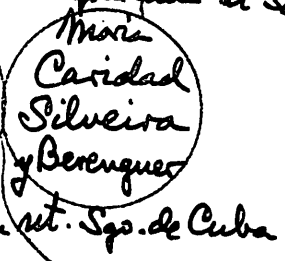 Maria
Caridad
Silveira
y Berenguer
nt. Sgo. de Cuba